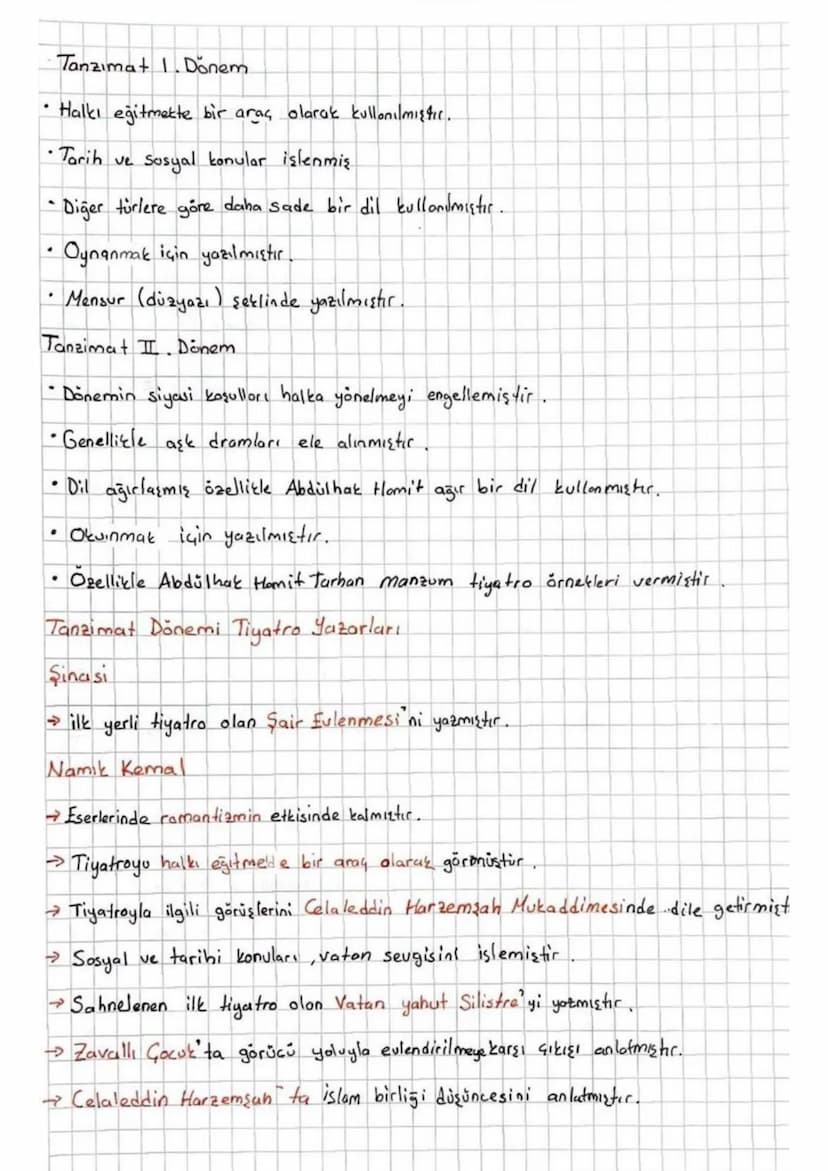 Tanzımat I. Dönem
• Halkı eğitmekte bir araç olarak kullanılmıştır.
• Tarih ve sosyal konular işlenmiş
• Diğer türlere göre daha sade bir dil kullanılmıştır.
• Oynanmak için yazılmıştır.
• Mensur (düzyazı) şeklinde yazılmıştır.
Tanzimat II. Dönem
• Dönemin siyasi koşulları halka yönelmeyi engellemiştir.
• Genellikle aşk dramları ele alınmıştır.
• Dil ağırlaşmış özellikle Abdülhak Hamit ağır bir dil kullanmıştır.
• Okunmak için yazılmıştır.
• Özellikle Abdülhak Hamit Tarhan manzum tiyatro örnekleri vermiştir.
Tanzimat Dönemi Tiyatro Yazarları
Şinasi
→ ilk yerli tiyatro olan Şair Evlenmesi'ni yazmıştır.
Namık Kemal
→ Eserlerinde romantizmin etkisinde kalmıştır.
→ Tiyatroyu halkı eğitmekte bir araç olarak görmüştür.
→ Tiyatroyla ilgili görüşlerini Celaleddin Harzemşah Mukaddimesinde dile getirmişt
→ Sosyal ve tarihi konuları, vatan sevgisini işlemiştir.
→ Sahnelenen ilk tiyatro olan Vatan yahut Silistre'yi yazmıştır.
→ Zavallı Çocuk'ta görücü yoluyla evlendirilmeye karşı çıkışı anlatmıştır.
→ Celaleddin Harzemşah'ta İslam birliği düşüncesini anlatmıştır.